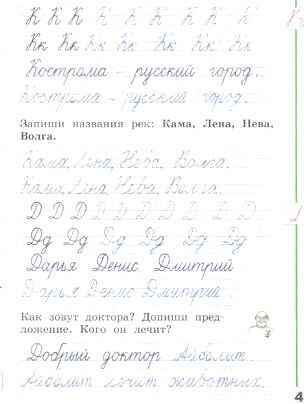 К К К К К К К К К
Кк Кк Кк Кк Кк Кк Кк
Кострома - русский город.
Кострома - русский город.
Запиши названия рек: Кама, Лена, Нева,
Волга.
Кама, Лена, Нева, Волга.
Кама, Лена, Нева, Волга.
Д Д Д Д Д Д Д Д Д
Дд Дд Дд Дд Дд Дд
Дарья Денис Дмитрий
Дарья Денис Дмитрий.
Как зовут доктора? Допиши пред-
ложение. Кого он лечит?
Добрый доктор Айболит.
Айболит лечит животных.
4